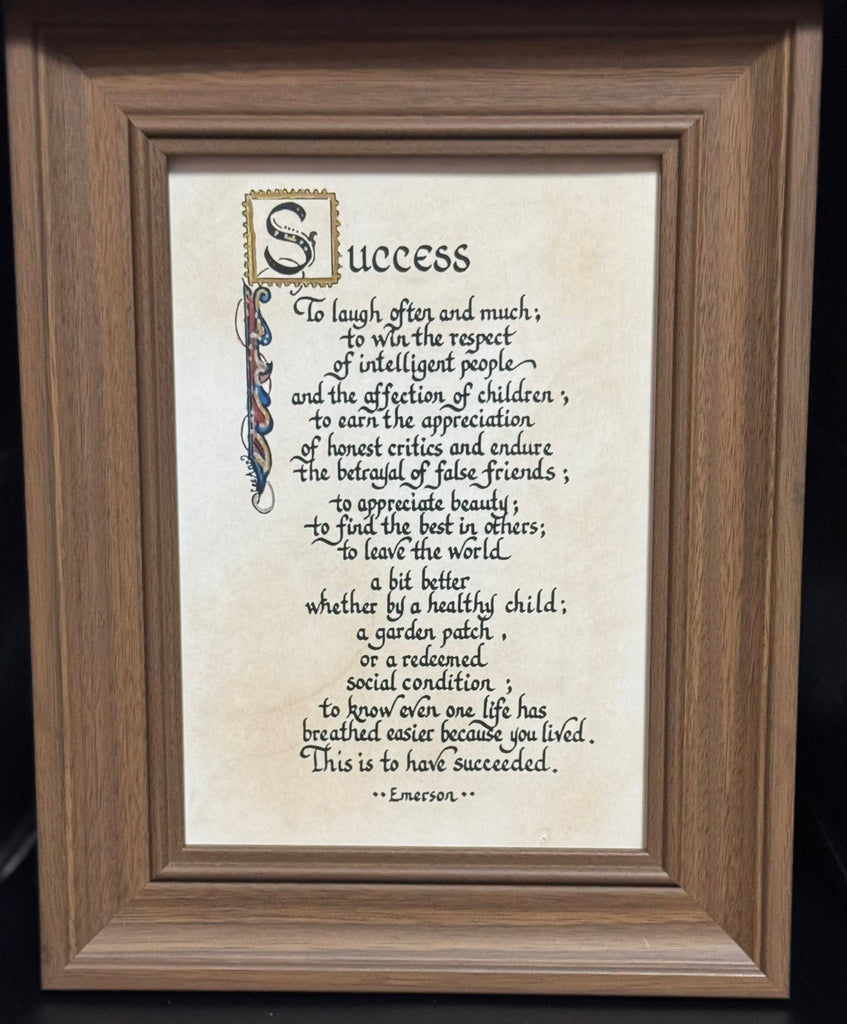 Success
To laugh often and much;
to win the respect
of intelligent people
and the affection of children;
to earn the appreciation
of honest critics and endure
the betrayal of false friends;
to appreciate beauty;
to find the best in others;
to leave the world
a bit better
whether by a healthy child;
a garden patch,
or a redeemed
social condition;
to know even one life has
breathed easier because you lived.
This is to have succeeded.
••Emerson••